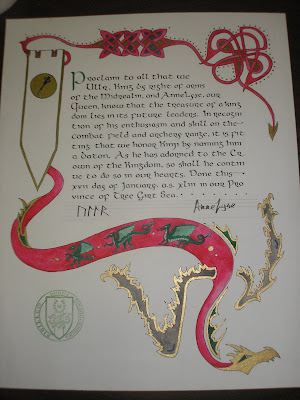 Proclaim to all that we
Ullr, King by right of arms
of the Midrealm, and AnneLyse, our
Queen, know that the treasure of a king
dom lies in its future leaders. In recogni
tion of his enthusiasm and skill on the
combat field and archery range, it is fit
ting that we honor by naming him
a baton. As he has adorned to the Cr
own of the Kingdom, so shall he contin
ue to do so in our hearts. Done this
xvii day of January, a.s. xliii in our Pro
vince of Tree Girt Sea.
ᚢᛚᛚᚱ
AnneLyse